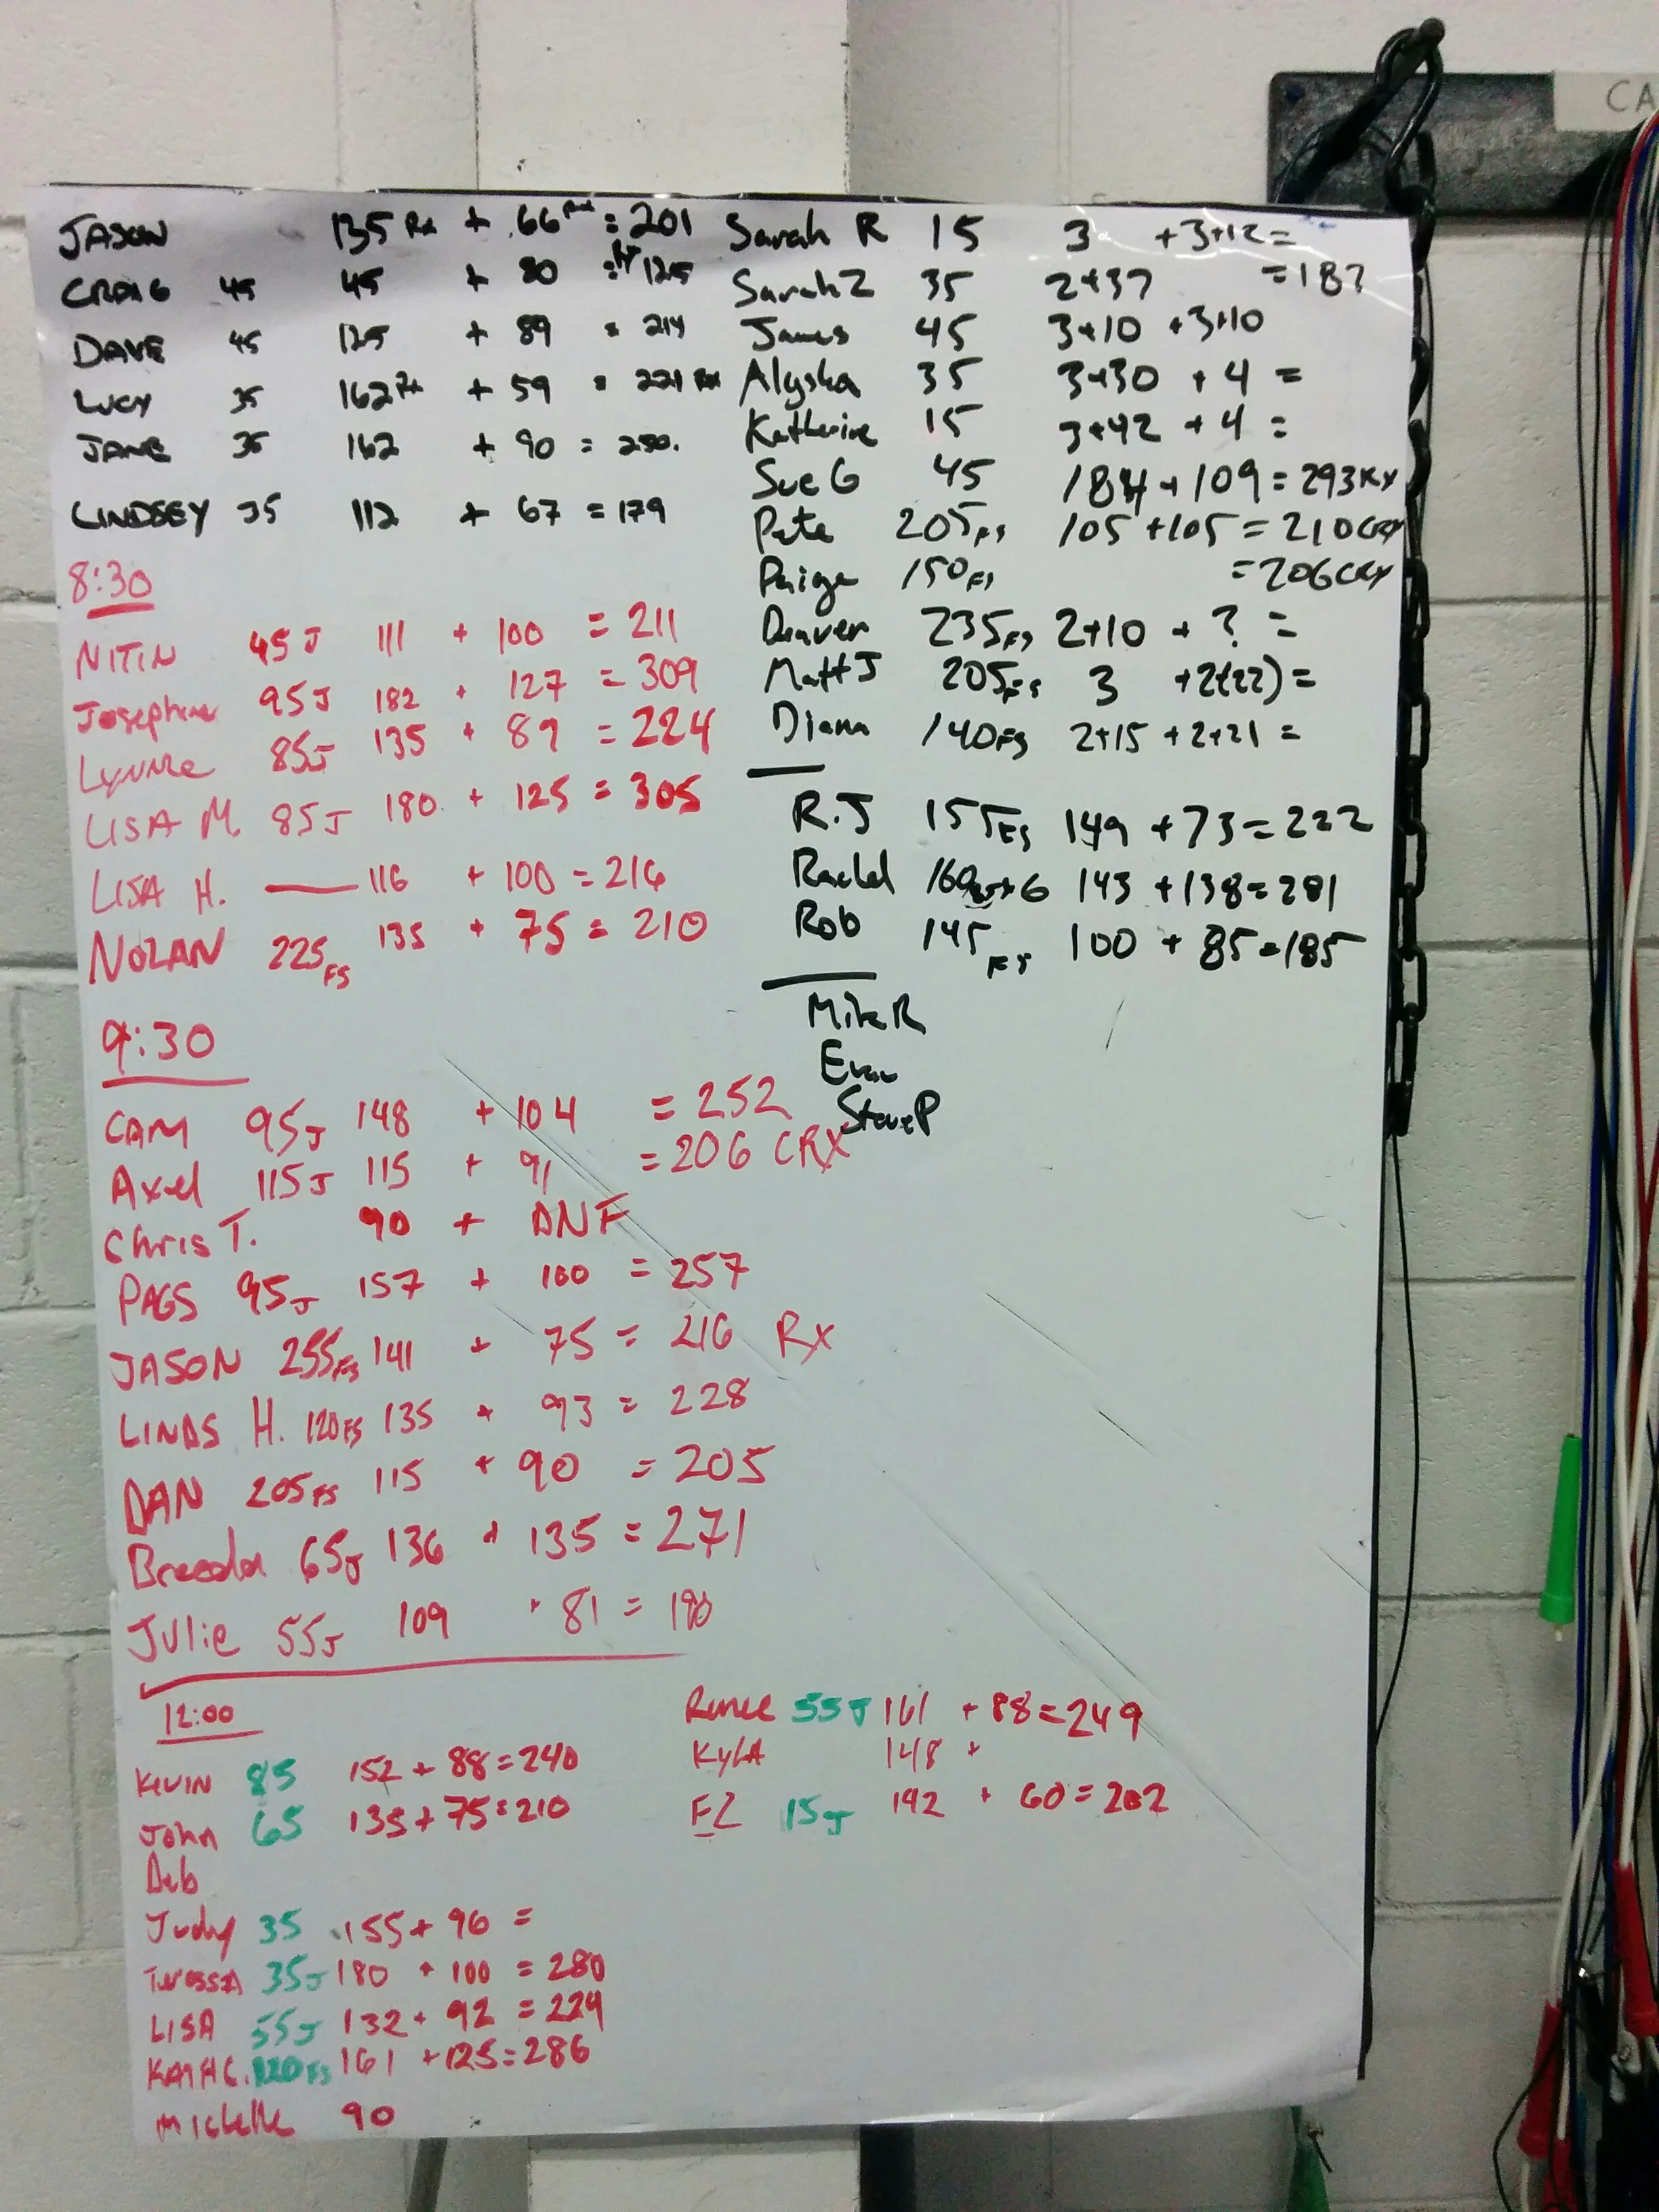 JASON 135 Rx + 66 Rx = 201
CRAIG 45 45 + 80 = 125
DAVE 45 125 + 89 = 214
LUCY 35 162 Rx + 59 = 221 Rx
JANE 35 162 + 90 = 250.
LINDSEY 35 112 + 67 = 179
8:30
NITIN 45J 111 + 100 = 211
Josephine 95J 182 + 127 = 309
Lynne 85J 135 + 89 = 224
LISA M. 85J 180 + 125 = 305
LISA H. — 116 + 100 = 216
NOLAN 225FS 135 + 75 = 210
9:30
CAM 95J 148 + 104 = 252
Axel 115J 115 + 91 = 206 CRX
Chris T. 90 + DNF
PAGS 95J 157 + 100 = 257
JASON 255FS 141 + 75 = 216 Rx
LINDS H. 120FS 135 + 93 = 228
DAN 205FS 115 + 90 = 205
Breeda 65J 136 + 135 = 271
Julie 55J 109 + 81 = 190
12:00
KEVIN 85 152 + 88 = 240
John 65 135 + 75 = 210
Deb
Judy 35 155 + 96 =
35J 180 + 100 = 280
LISA 55J 132 + 92 = 224
KATH C. 120FS 161 + 125 = 286
Michelle 90
Sarah R 15 3 + 3+12 =
Sarah Z 35 2+37 = 187
James 45 3+10 + 3+10
Alyska 35 3+30 + 4 =
Katherine 15 3+42 + 4 =
Sue G 45 184 + 109 = 293 RX
Pete 205FS 105 + 105 = 210 CRX
Paige 150FS = 206 CRX
Denver 235FS 2+10 + ? =
Matt J 205FS 3 + 2(22) =
Diana 140FS 2+15 + 2+21 =
R.J 155FS 149 + 73 = 222
Rachel 160 143 + 138 = 281
Rob 145FS 100 + 85 = 185
Mike R
Evan
Steve P
Renee 55J 161 + 88 = 249
KYLA 148 +
EZ 15J 192 + 60 = 202
CA